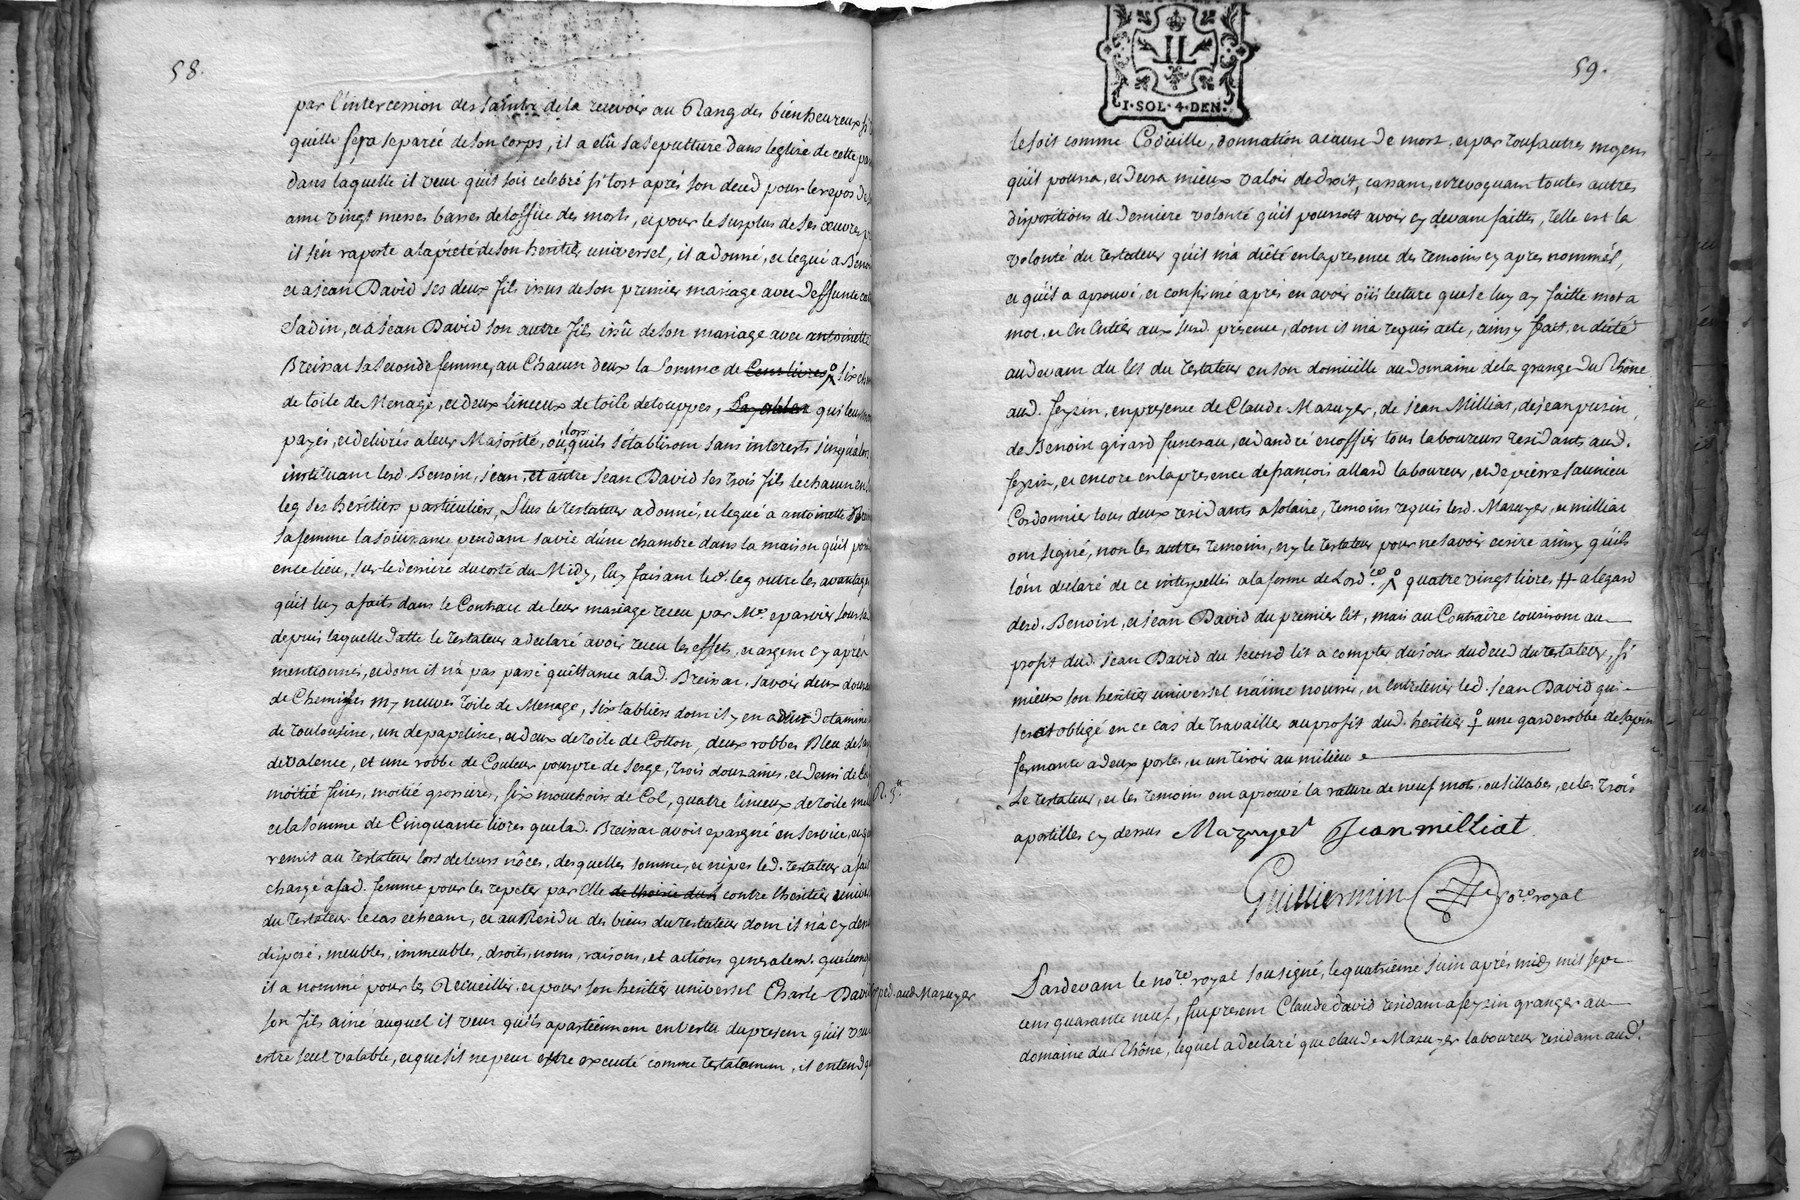 58.
par l'intercession des saints de la recevoir au Rang des bienheureux
quelle sera separée de son corps, il a elû sa sepulture dans leglise de cette
dans laquelle il veut quil soit celebré si tost aprés son deced pour le repos de
ame vingt messes basses de loffice des morts, et pour le surplus de ses œuvres
il s'en raporte a la pieté de son heritier universel, il a donné, et legué a
et a Jean David ses deux fils issus de son premier mariage avec deffunte
Jadin, et à Jean David son autre fils issû de son mariage avec antoinette
Breissat sa seconde femme, au Chacun deux la somme de Cent livres six
de toile de Menage, et deux linceux de toile detouppes, payables qui leur
payés, et delivrés a leur Majorité, ou lors quils s'etabliront sans interests jusqu'alors
instituant lesd. Benoin, jean, et autre Jean David ses trois fils le chacun en
leg ses heritiers particuliers, Plus le testateur a donné, et legué a antoinette
sa femme la jouissance pendant sa vie d'une chambre dans la maison qu'il
en ce lieu, sur le derriere du costé du Midy, luy faisant led. leg outre les avantages
quil luy a faits dans le Contract de leur mariage receu par Me. eparvier
depuis laquelle datte le testateur a declaré avoir receu les effets, et argent cy aprés
mentionnés, et dont il n'a pas passé quittance a lad. Breissat, savoir deux
de Chemises my neuves toile de Menage, six tabliers dont il y en a deux detamine
de toulousine, un de papeline, et deux de toile de Cotton, deux robbes Bleu de
de valence, et une robbe de Couleur pourpre de serge, trois douzaines, et demi de
moitié fines, moitié grossieres, six mouchoirs de Col, quatre linceux de toile
et la somme de Cinquante livres que lad. Breissat avoit epargné en service,
remis au testateur lors de leurs nôces, desquelles somme, et nipes led. testateur a fait
chargé a sad. femme pour les repeter par Elle de lhoirie du contre lheritier
du testateur le cas echeant, et au Residu des biens du testateur dont il n'a cy
disposé, meubles, immeubles, droits, noms, raisons, et actions generalem.
il a nommé pour les Recueillir, et pour son heritier universel Charle David
son fils ainé auquel il veut quils apartiennent en vertu du present quil veut
estre seul valable, et que s'il ne peut estre executé comme testatament, il entend
exped. aud. Mazuyer
I·SOL·4·DEN·
59.
le soit comme Codicille, donnation a cause de mort, et par tous autres moyens
quil pourra, et devra mieux valoir de droit, cassant, et revoquant toutes autres
dispositions de derniere volonté quil pourroit avoir cy devant faittes, telle est la
volonté du testateur quil m'a dicté en la presence des temoins cy apres nommés,
et quil a aprouvé, et confirmé aprés en avoir oüi lecture que je luy ay faitte mot a
mot, et en entier aux susd. presence, dont il m'a requis acte, ainsy fait, et dicté
au devant du lit du testateur en son domicille au domaine de la grange du Rhône
aud. feyzin, en presence de Claude Mazuyer, de jean Milliat, de jean
de Benoist girard et d'andré tous laboureurs residants aud.
feyzin, et encore en la presence de françois allard laboureur, et de pierre
Cordonnier tous deux residants a Solaise, temoins requis lesd. Mazuyer, et milliat
ont signé, non les autres temoins, ny le testateur pour ne savoir ecrire ainsy quils
l'ont declaré de ce interpellés a la forme de Lord.ce quatre vingts livres # a legard
desd. Benoist, et Jean David du premier lit, mais au Contraire couriront au
profit dud. Jean David du second lit a compter du jour du deced du testateur, si
mieux son heritier universel n'aime nourrir, et entretenir led. Jean David qui
sera obligé en ce cas de travailler au profit dud. heritier une garderobbe de sapin
fermante a deux portes, et un tiroir au milieu
Le testateur, et les temoins ont aprouvé la rature de neuf mots, ou sillabes, et les trois
apostilles cy dessus Mazuyer Jean milliat
Guilliermin nore. royal
Pardevant le nore. royal sousigné, le quatrieme juin aprés midy mil sept
cens quarante neuf, fut present Claude David residant a feyzin granger au
domaine du Rhône, lequel a declaré que claude Mazuyer laboureur residant aud.